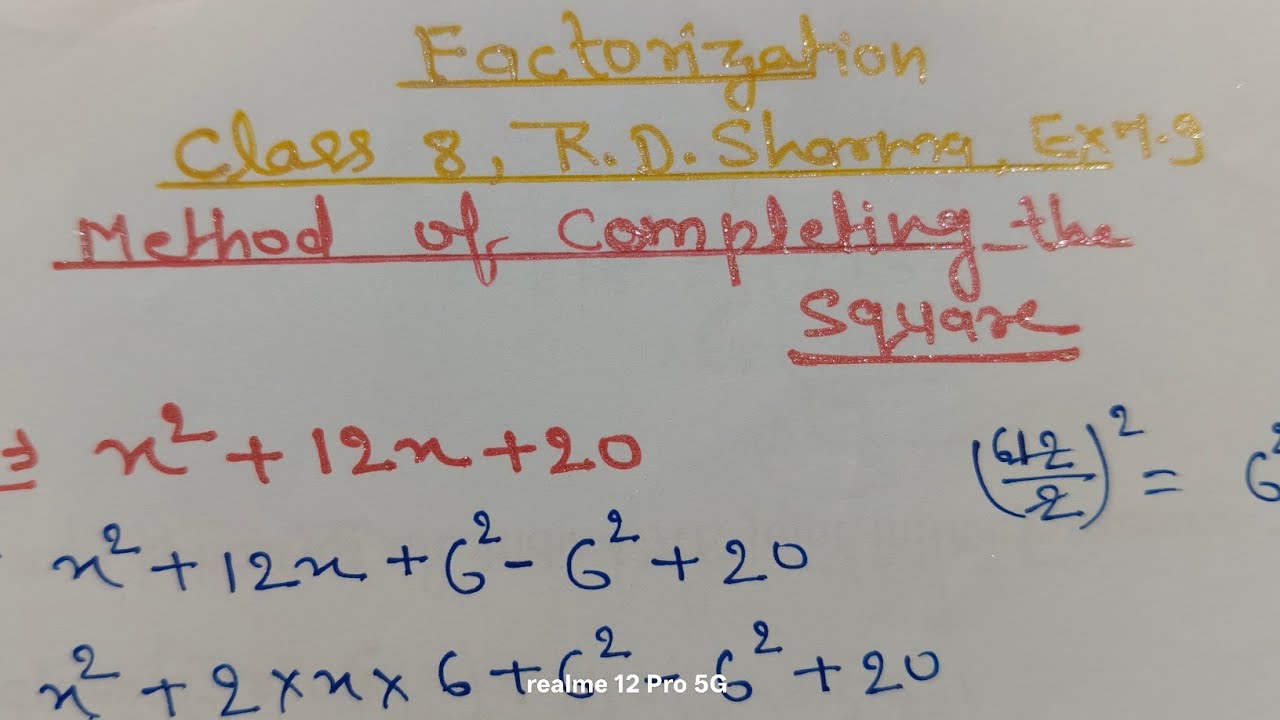 Factorization
Class 8, R.D. Sharma, Ex 7.9
Method of Completing the
Square
⇒ x² + 12x + 20
(12/2)² = 6²
x² + 12x + 6² - 6² + 20
x² + 2 × x × 6 + 6² - 6² + 20
realme 12 Pro 5G